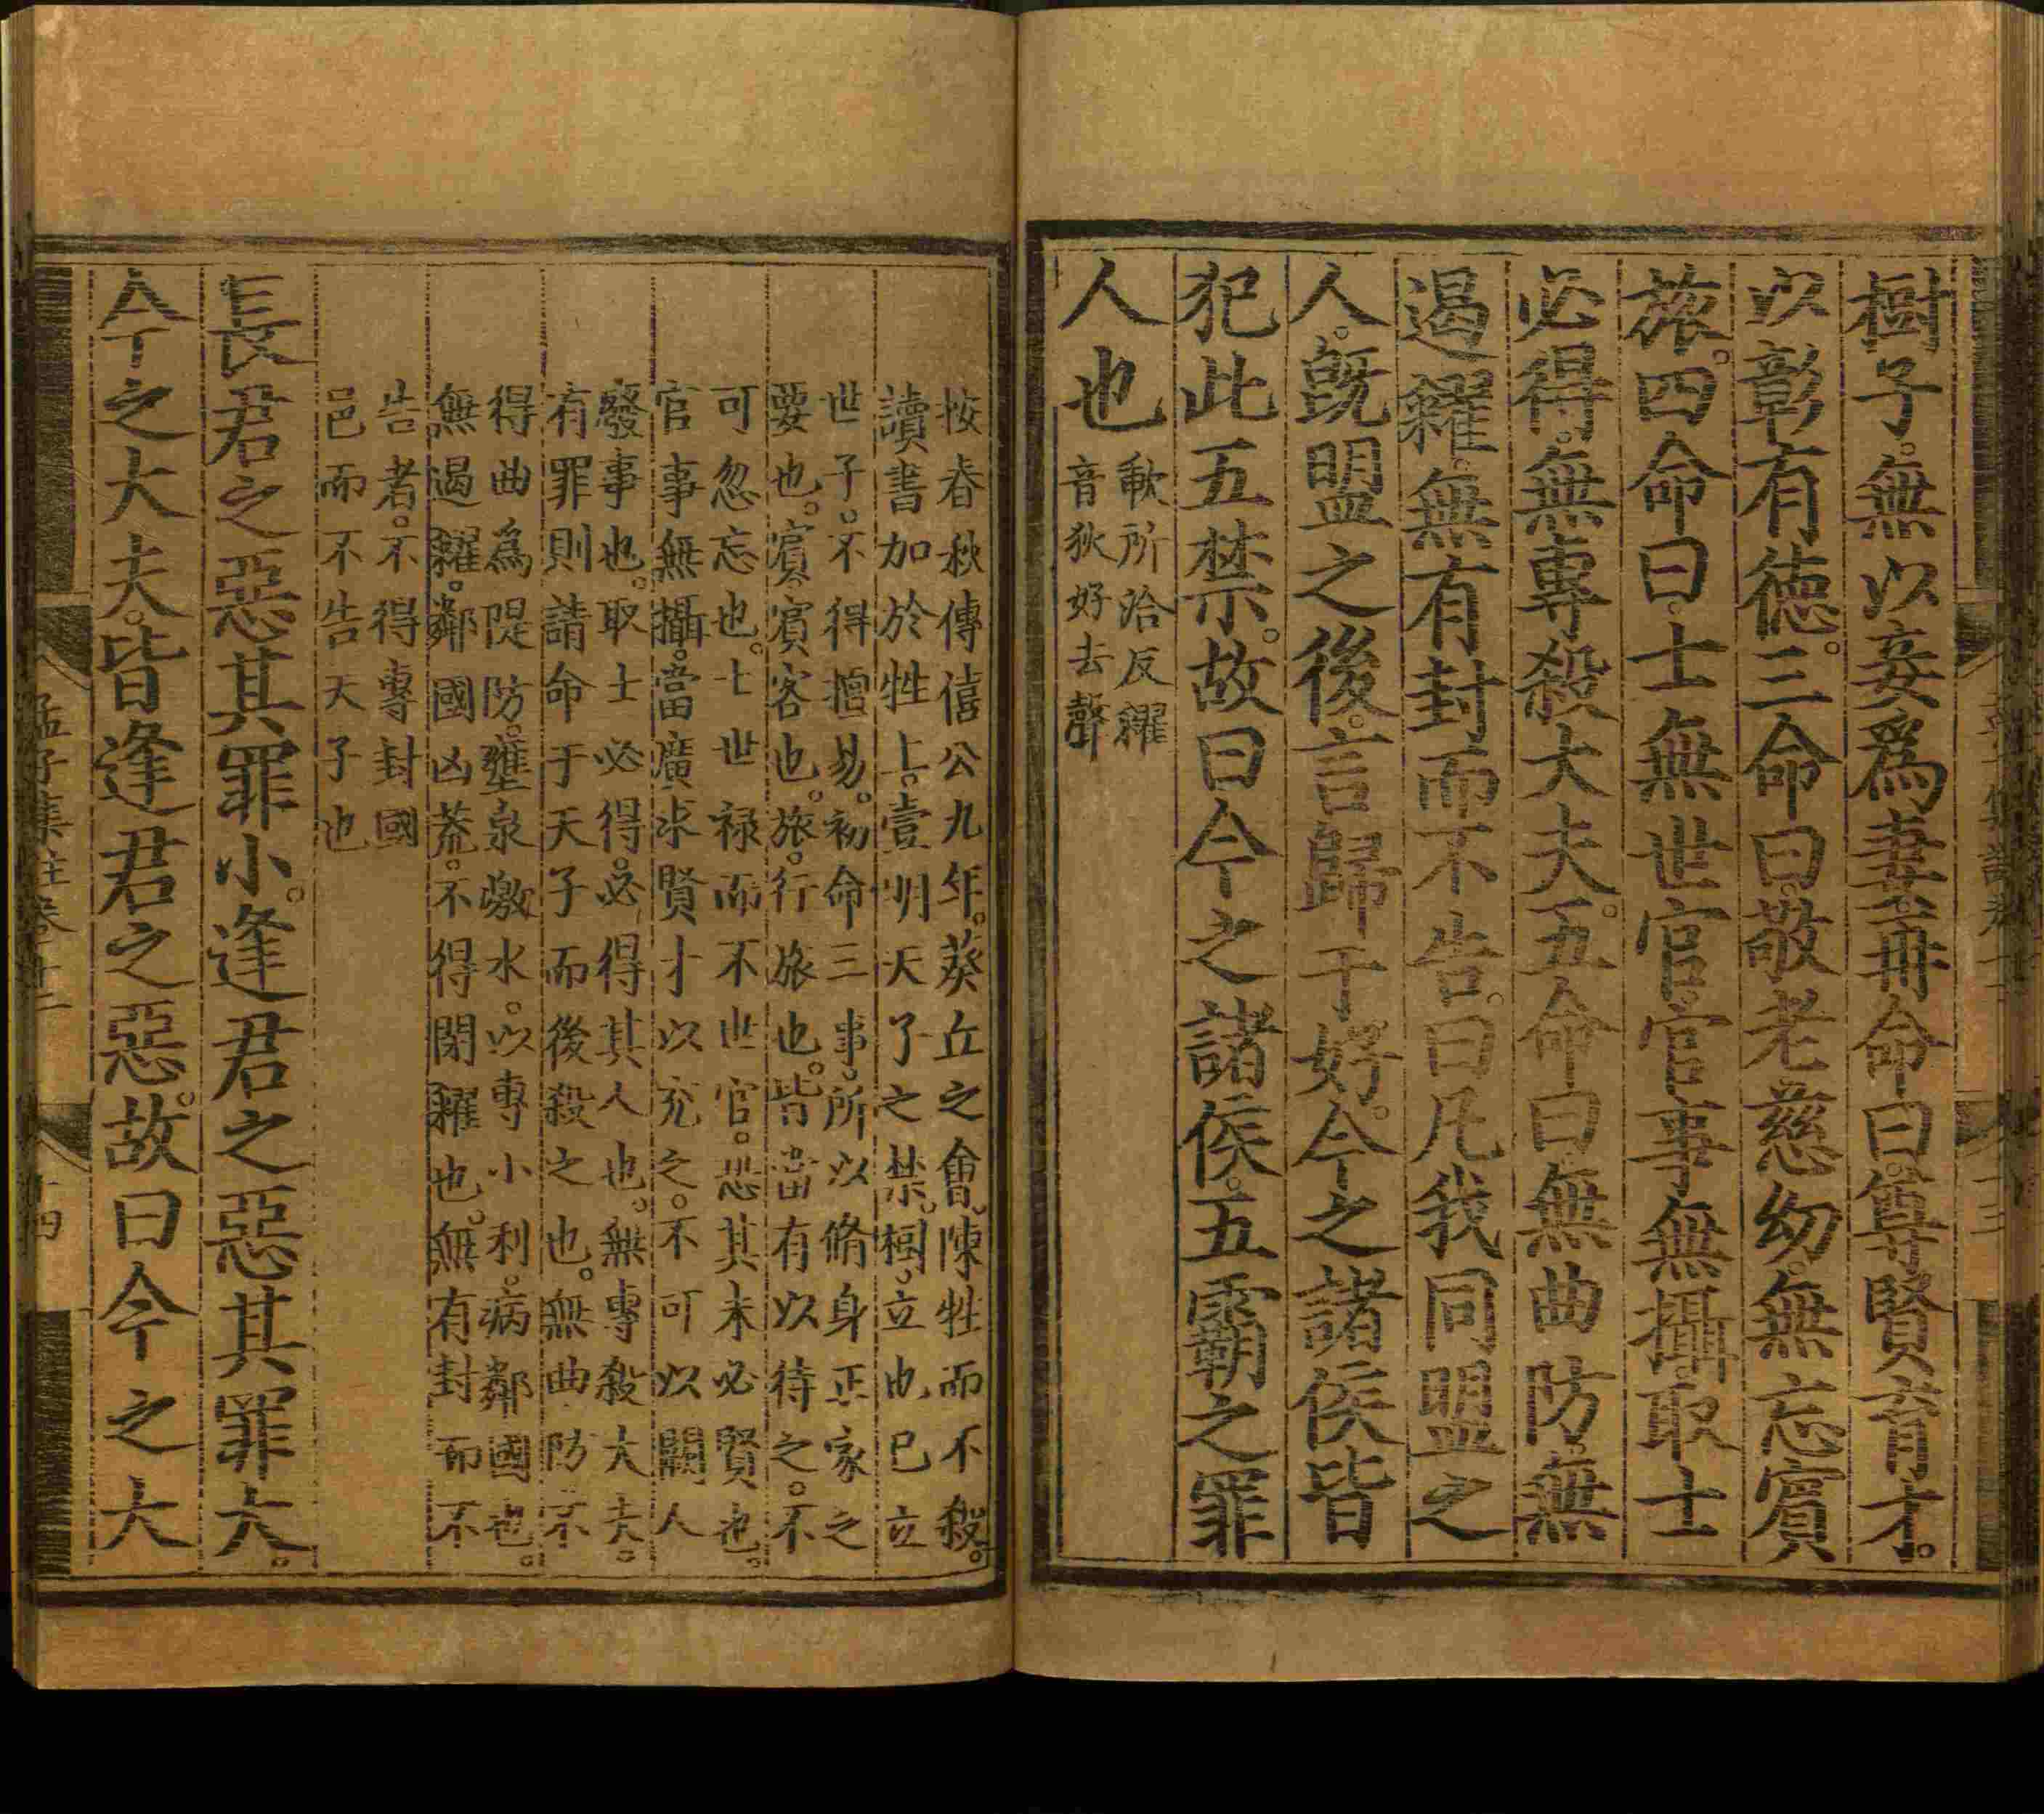 樹子。無以妾為妻。再命曰。尊賢育才。
以彰有徳。三命曰。敬老慈幼。無忘賓
旅。四命曰。士無世官。官事無攝。取士
必得。無專殺大夫。五命曰。無曲防。無
遏糴。無有封而不告。曰凡我同盟之
人。旣盟之後。言歸于好。今之諸侯皆
犯此五禁。故曰今之諸侯。五霸之罪
人也
歃所洽反糴
音狄好去聲
按春秋傳僖公九年。葵丘之會。陳牲而不殺。
讀書加於牲上。壹明天子之禁。樹。立也已立
世子。不得擅易。初命三事。所以脩身正家之
要也。賓。賓客也。旅。行旅也。皆當有以待之。不
可忽忘也。士世禄而不世官。恐其未必賢也。
官事無攝。當廣求賢才以充之。不可以闕人
廢事也。取士必得。必得其人也。無專殺大夫。
有罪則請命于天子而後殺之也。無曲防。不
得曲為隄防。壅泉激水。以專小利。病鄰國也。
無遏糴。鄰國凶荒。不得閉糴也。無有封而不
告者。不得專封國
邑而不告天子也
長君之惡其罪小。逢君之惡其罪大。
今之大夫。皆逢君之惡。故曰今之大
孟子集註卷十二
十四